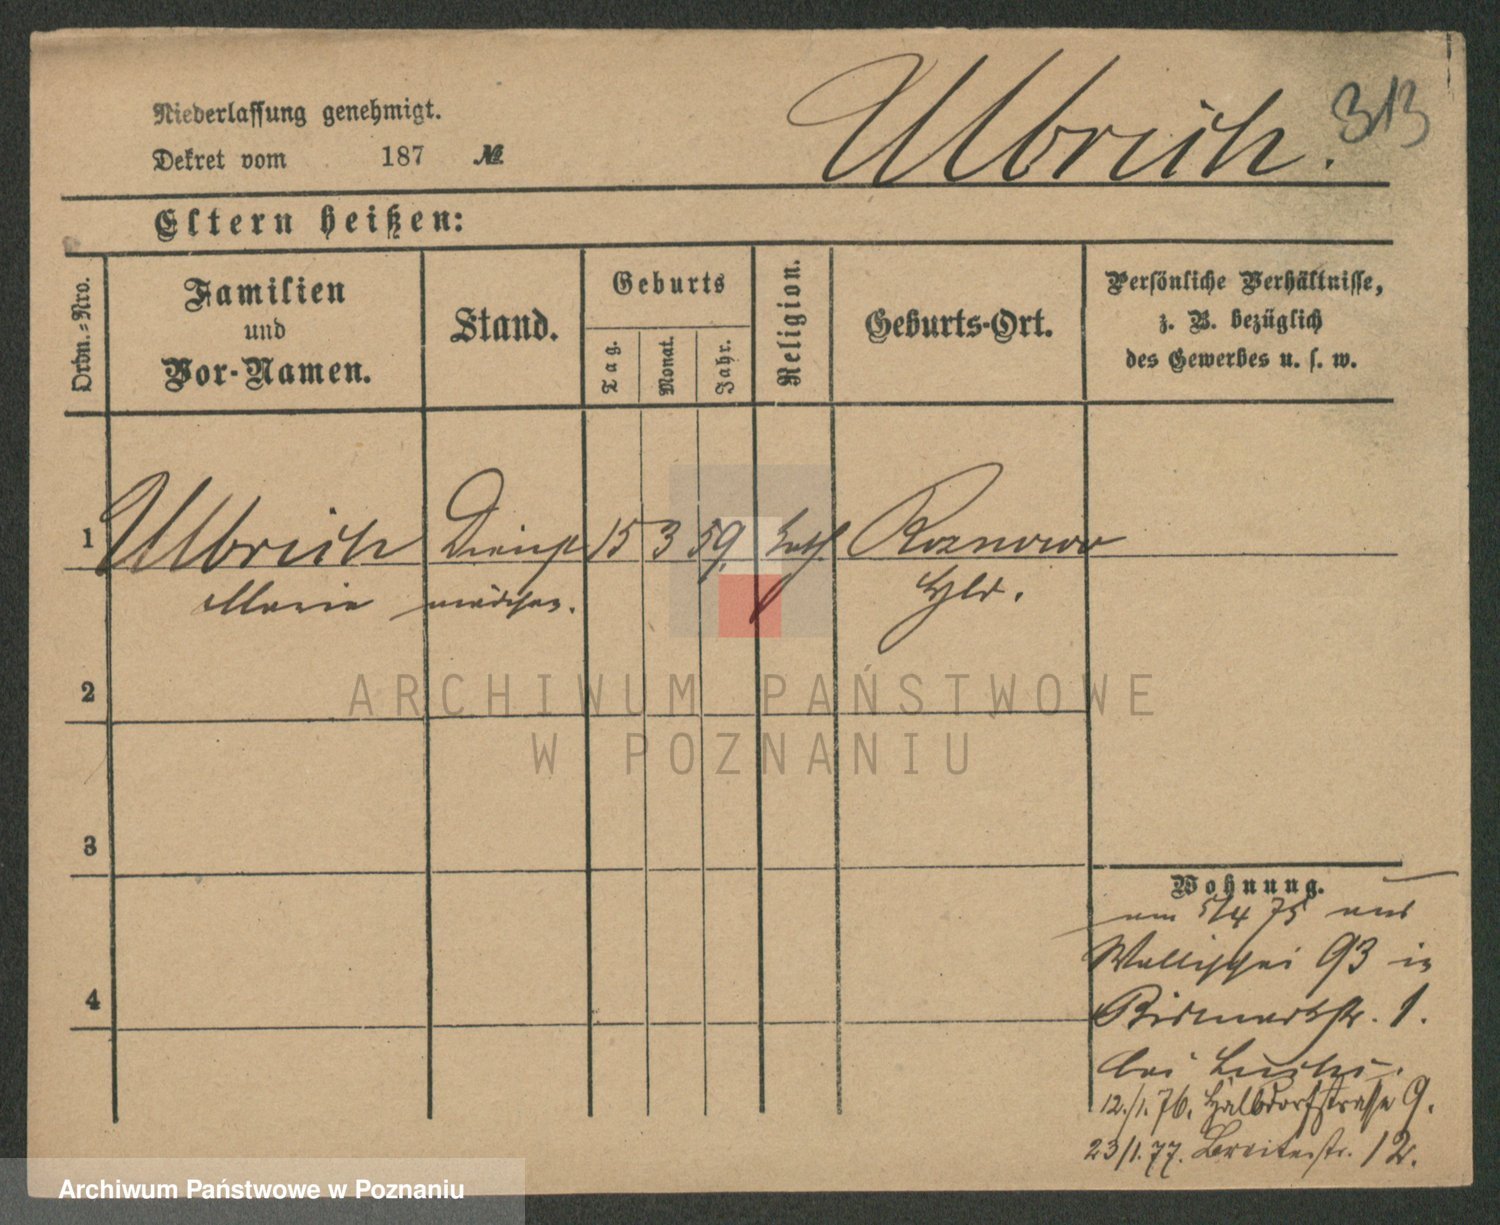 Niederlassung genehmigt.
Dekret vom 187 №
Ulbrich. 313
Eltern heißen:
Ordn.=Nro.
Familien
und
Vor-Namen.
Stand.
Geburts
Tag.
Monat.
Jahr.
Religion.
Geburts-Ort.
Persönliche Verhältnisse,
z. B. bezüglich
des Gewerbes u. s. w.
1 Ulbrich Dienst 15 3 59. kath. Roznowo
Marie mädchen. Hld.
2
3
4
Wohnung.
am 5/4 75 aus
Wallischei 93 in
Bismarkstr. 1.
bei
12./1. 76. Halbdorfstrasse 9.
23/1. 77. Breitestr. 12.
ARCHIWUM PAŃSTWOWE
W POZNANIU
Archiwum Państwowe w Poznaniu